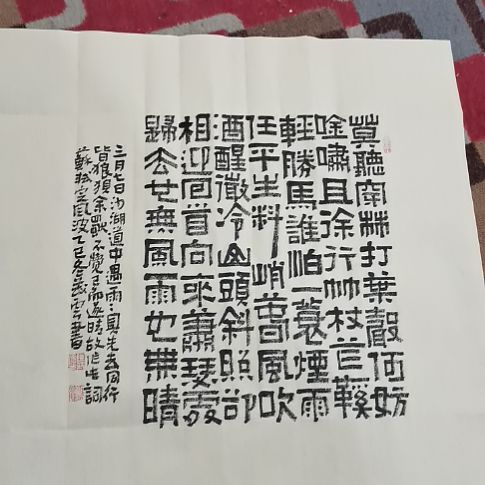 莫聽穿林打葉聲何妨
吟嘯且徐行竹杖芒鞋
輕勝馬誰怕一蓑煙雨
任平生料峭春風吹
酒醒微冷山頭斜照卻
相迎回首向來蕭瑟處
歸去也無風雨也無晴
三月七日沙湖道中遇雨〻具先去同行
皆狼狽余獨不覺已而遂晴故作此詞
蘇軾定風波乙巳冬雲書